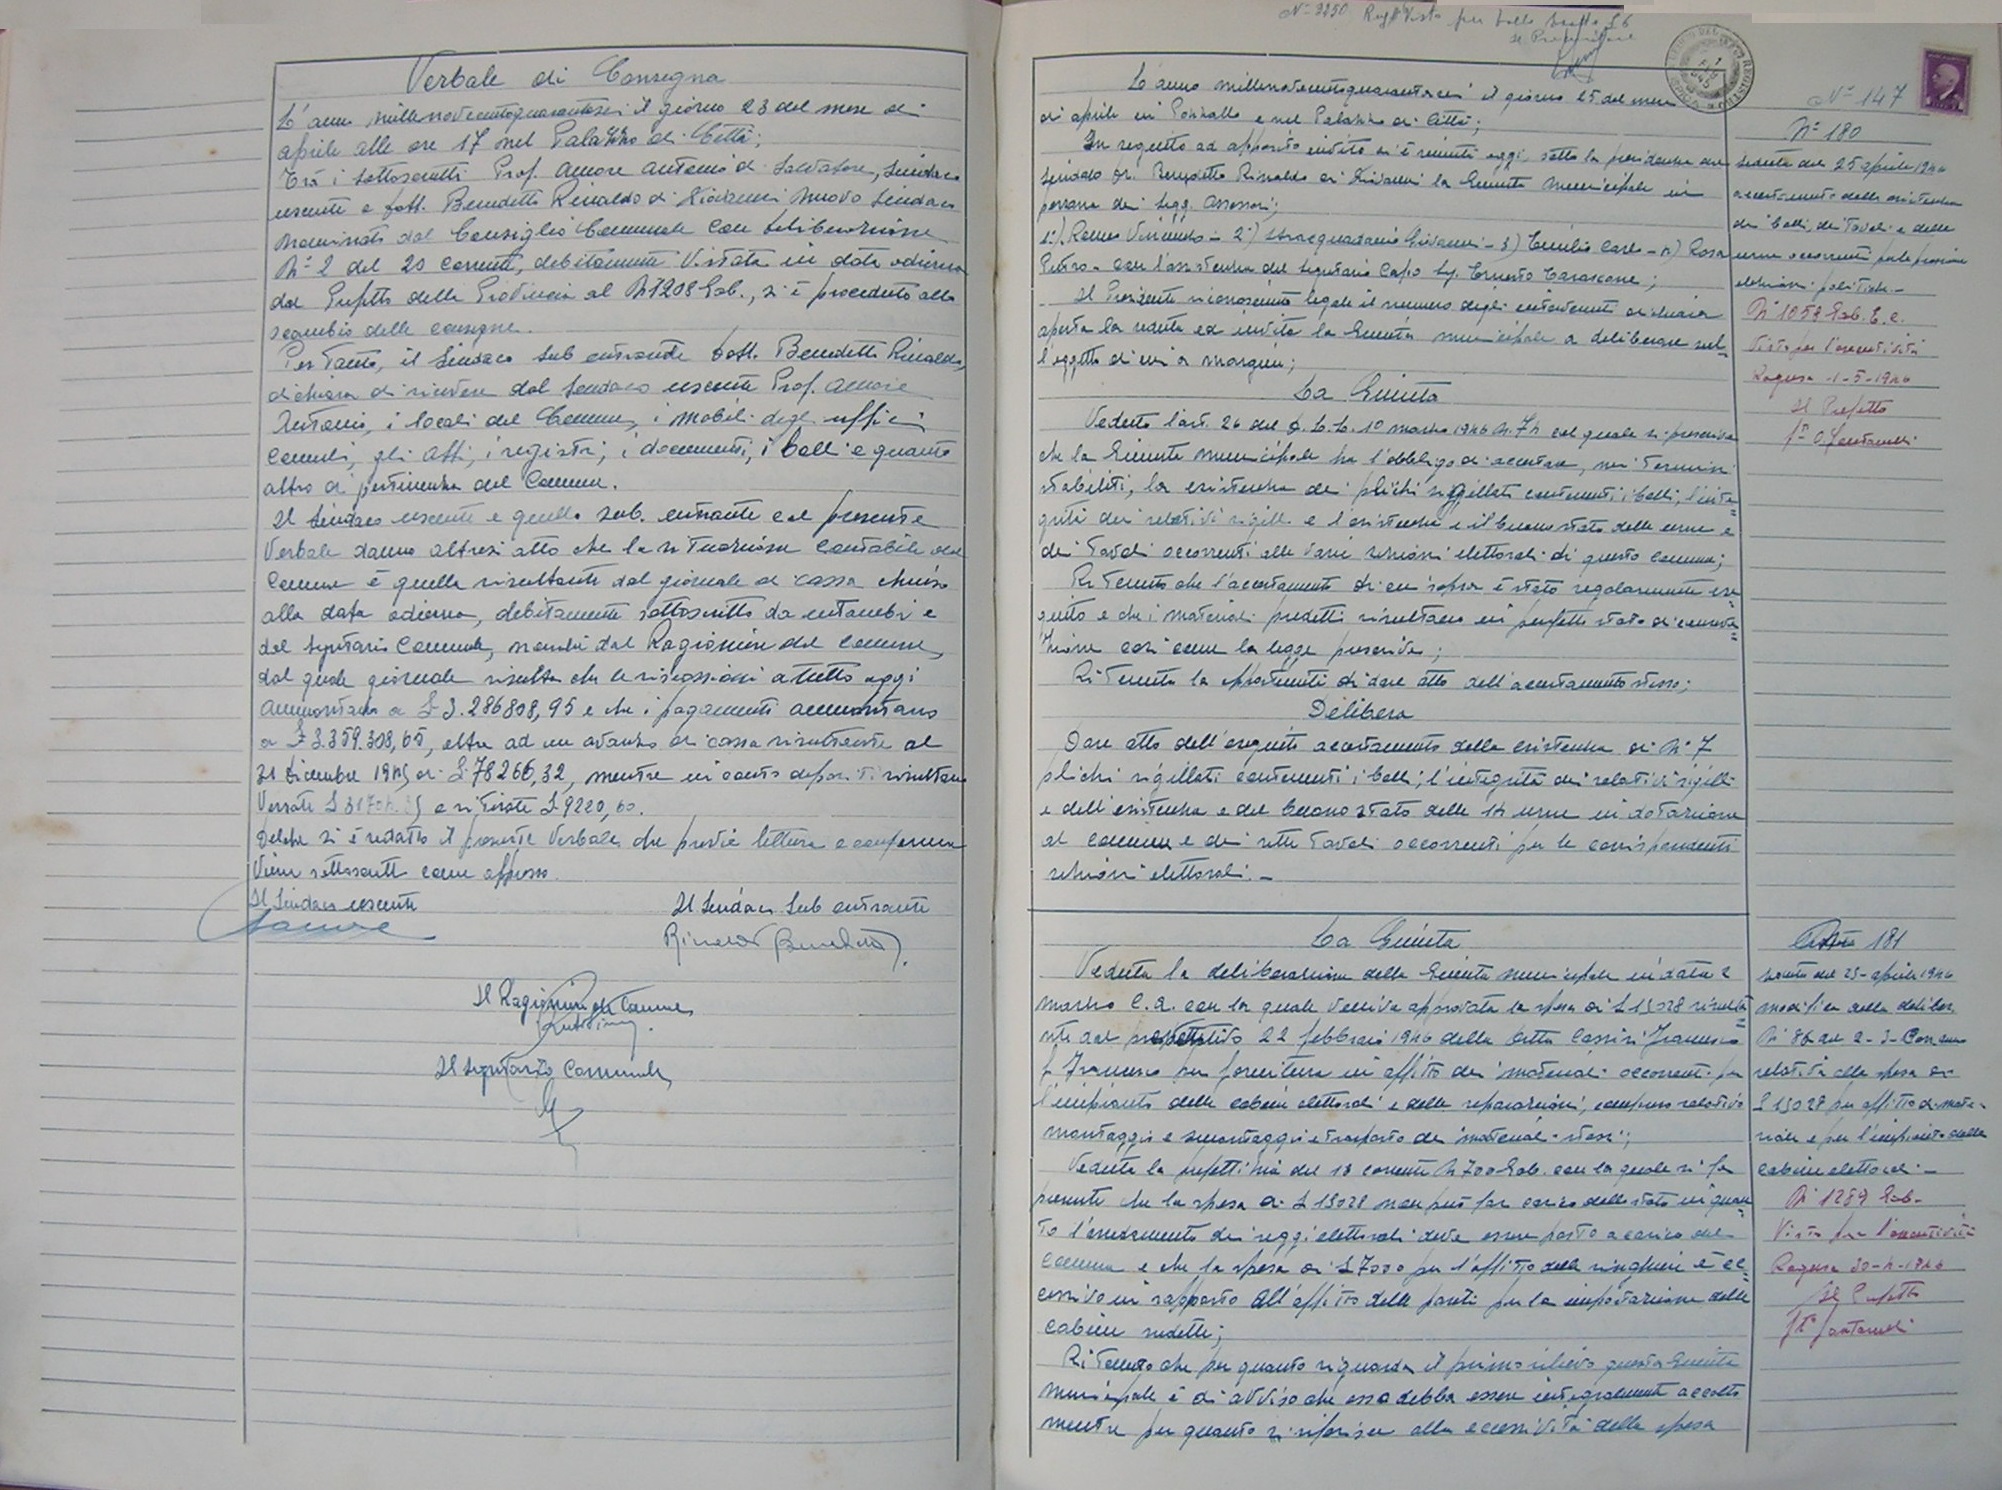 Verbale di Consegna
L'anno millenovecentoquarantasei il giorno 23 del mese di
aprile alle ore 17 nel Palazzo di Città;
Trà i sottoscritti Prof. Amore Antonio di Salvatore, Sindaco
uscente e Dott. Benedetto Rinaldo di Giovanni nuovo Sindaco
nominato dal Consiglio Comunale con deliberazione
N° 2 del 20 corrente, debitamente vistata in data odierna
dal Prefetto della Provincia al N 1208 Gab., si è proceduto allo
scambio delle consegne.
Per tanto, il Sindaco sub entrante Dott. Benedetto Rinaldo,
dichiara di ricevere dal Sindaco uscente Prof. Amore
Antonio, i locali del Comune, i mobili degli uffici
comunali, gli atti, i registri, i documenti, i bolli e quanto
altro di pertinenza del Comune.
Il Sindaco uscente e quello sub. entrante col presente
Verbale danno altresì atto che la situazione contabile del
Comune è quella risultante dal giornale di cassa chiuso
alla data odierna, debitamente sottoscritto da entrambi e
dal Segretario Comunale, nonchè dal Ragioniere del Comune,
dal quale giornale risulta che le riscossioni a tutto oggi
ammontano a £ 3.286808,95 e che i pagamenti ammontano
a £ 3.359.308,65, oltre ad un avanzo di cassa risultante al
31 Dicembre 1945 di £ 78266,32, mentre in conto depositi risultano
Versate £ e ritirate £ 9220,60.
Delchè si è redatto il presente Verbale, che previa lettura e conferma
viene sottoscritto come appresso.
Il Sindaco uscente Il Sindaco Sub entrante
Amore Rinaldo Benedetto
Il Ragioniere del Comune
Il Segretario Comunale
N° 3250 Reg° Visto per bollo £ 6
Il Procuratore
N° 147
L'anno millenovecentoquarantasei il giorno 25 del mese
di aprile in Pozzallo e nel Palazzo di Città;
In seguito ad apposito invito si è riunita oggi, sotto la presidenza del
Sindaco Dr. Benedetto Rinaldo di Giovanni la Giunta Municipale in
persona dei Sigg. Assessori;
1°) Romeo Vincenzo - 2°) Stracquadanio Giovanni - 3) Emilio Carlo - 4) Rosa
Pietro - con l'assistenza del Segretario Capo Sig. Ernesto Carascone;
Il Presidente riconosciuto legale il numero degli intervenuti dichiara
aperta la seduta ed invita la Giunta municipale a deliberare sul=
l'oggetto di cui a margine;
La Giunta
Veduto l'art. 26 del D. L. L. 10 marzo 1946 N. 74 col quale si prescrive
che la Giunta Municipale ha l'obbligo di accertare, nei termini
stabiliti, la esistenza dei plichi sigillati contenenti i bolli, l'inte=
grità dei relativi sigilli e l'esistenza e il buono stato delle urne e
dei tavoli occorrenti alle varie sezioni elettorali di questo Comune;
Ritenuto che l'accertamento di cui sopra è stato regolarmente ese=
guito e che i materiali predetti risultano in perfetto stato di conserva=
zione così come la legge prescrive;
Ritenuta la opportunità di dare atto dell'accertamento stesso;
Delibera
Dare atto dell'eseguito accertamento della esistenza di N° 7
plichi sigillati contenenti i bolli, l'integrità dei relativi sigilli
e dell'esistenza e del buono stato delle 14 urne in dotazione
al Comune e dei sette tavoli occorrenti per le corrispondenti
sezioni elettorali. -
N° 180
Seduta del 25 aprile 1946
accertamento della esistenza
dei bolli, dei tavoli e delle
urne occorrenti per le prossime
elezioni politiche. -
N 1058 Gab. E. C.
Visto per l'esecutività
Ragusa 1-5-1946
Il Prefetto
f° O. Jantarelli
La Giunta
Veduta la deliberazione della Giunta municipale in data 2
marzo c. a. con la quale veniva approvata la spesa di £ 13028 risulta=
nte dal preventivo 22 febbraio 1946 della Ditta Cassisi Francesco
f Francesco per fornitura in affitto dei materiali occorrenti per
l'impianto delle cabine elettorali e delle riparazioni, compreso relativo
montaggio e smontaggio e trasporto dei materiali stessi;
Veduta la prefettizia del 13 corrente N 700 Gab. con la quale si fa
presente che la spesa di £ 13028 non può far carico dello stato in quan=
to l'arredamento dei seggi elettorali deve essere posto a carico del
Comune e che la spesa di £ 7000 per l'affitto delle ringhiere è ec=
cessiva in rapporto all'affitto delle pareti per la impostazione delle
cabine sudette;
Ritenuto che per quanto riguarda il primo rilievo questa Giunta
Municipale è di avviso che esso debba essere integralmente accolto
mentre per quanto si riferisce alla eccessività della spesa
181
Seduta del 25 aprile 1946
modifica della deliber.
N° 86 del 2-3-
relativa alla spesa di
£ 13028 per affitto di mate=
riale e per l'impianto delle
cabine elettorali -
N° 1289 Gab.
Visto per l'esecutività
Ragusa 30-4-1946
Il Prefetto
f° Jantarelli